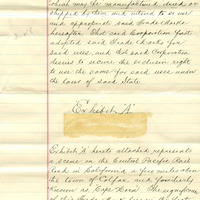 which may be manufactured, dried or
shipped by them and intend to so use
and appropriate said Trade Marks
hereafter. That said Corporation first
adopted said Trade Marks for
said uses, and that said Corporation
desires to secure the exclusive right
to use the same for said uses under
the laws of said State.
Exhibit "A"
Exhibit "A" hereto attached represents
a scene on the Central Pacific Rail
Road in California a few miles above
the town of Colfax, and familiarly
known as Cape Horn. The significance
of this Trade Mark